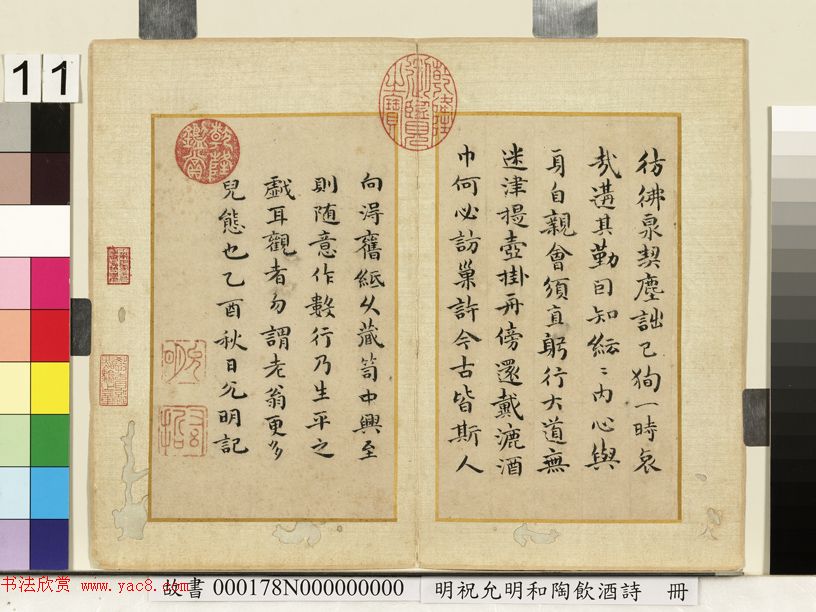 彷彿泉契塵詘己狥一時哀
哉遘其勤自知紜〻内心與
身自親會須直躬行大道無
迷津提壺掛舟傍還戴漉酒
巾何必訪巢許今古皆斯人
向得舊紙久藏笥中興至
則随意作數行乃生平之
戯耳觀者勿謂老翁更多
兒態也乙酉秋日允明記
乾隆御覽之寶
乾隆鑑賞
11
书法欣赏 www.yac8.com
故書 000178N000000000
明祝允明和陶飲酒詩 冊